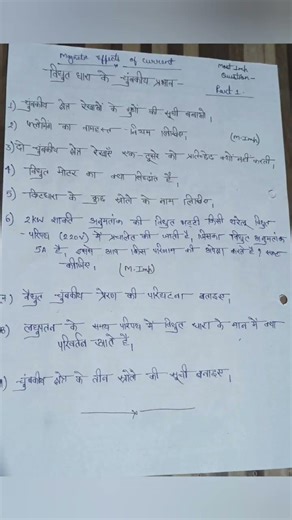 Magnetic Effects of Current
Most Imp
Question -
Part 1
विद्युत धारा के चुंबकीय प्रभाव -
1) चुंबकीय क्षेत्र रेखाओं के गुणों की सूची बनाओ।
2) फ्लेमिंग का वामहस्त नियम लिखिए।
(M.Imp)
3) दो चुंबकीय क्षेत्र रेखाएँ एक-दूसरे को प्रतिच्छेद क्यों नहीं करती।
4) विद्युत मोटर का क्या सिद्धांत है।
5) दिष्टधारा के कुछ स्रोतों के नाम लिखिए।
6) 2kW शक्ति अनुमतांक की विद्युत भट्टी किसी घरेलू विद्युत
परिपथ (220V) में प्रचालित की जाती है, जिसका विद्युत अनुमतांक
5A है, इससे आप किस परिणाम की अपेक्षा करते हैं?
कीजिए। (M.Imp)
7) वैद्युत चुंबकीय प्रेरण की परिघटना बताइए।
8) लघुपतन के समय परिपथ में विद्युत धारा के मान में क्या
परिवर्तन आते हैं।
9) चुंबकीय क्षेत्र के तीन स्रोतों की सूची बनाइए।